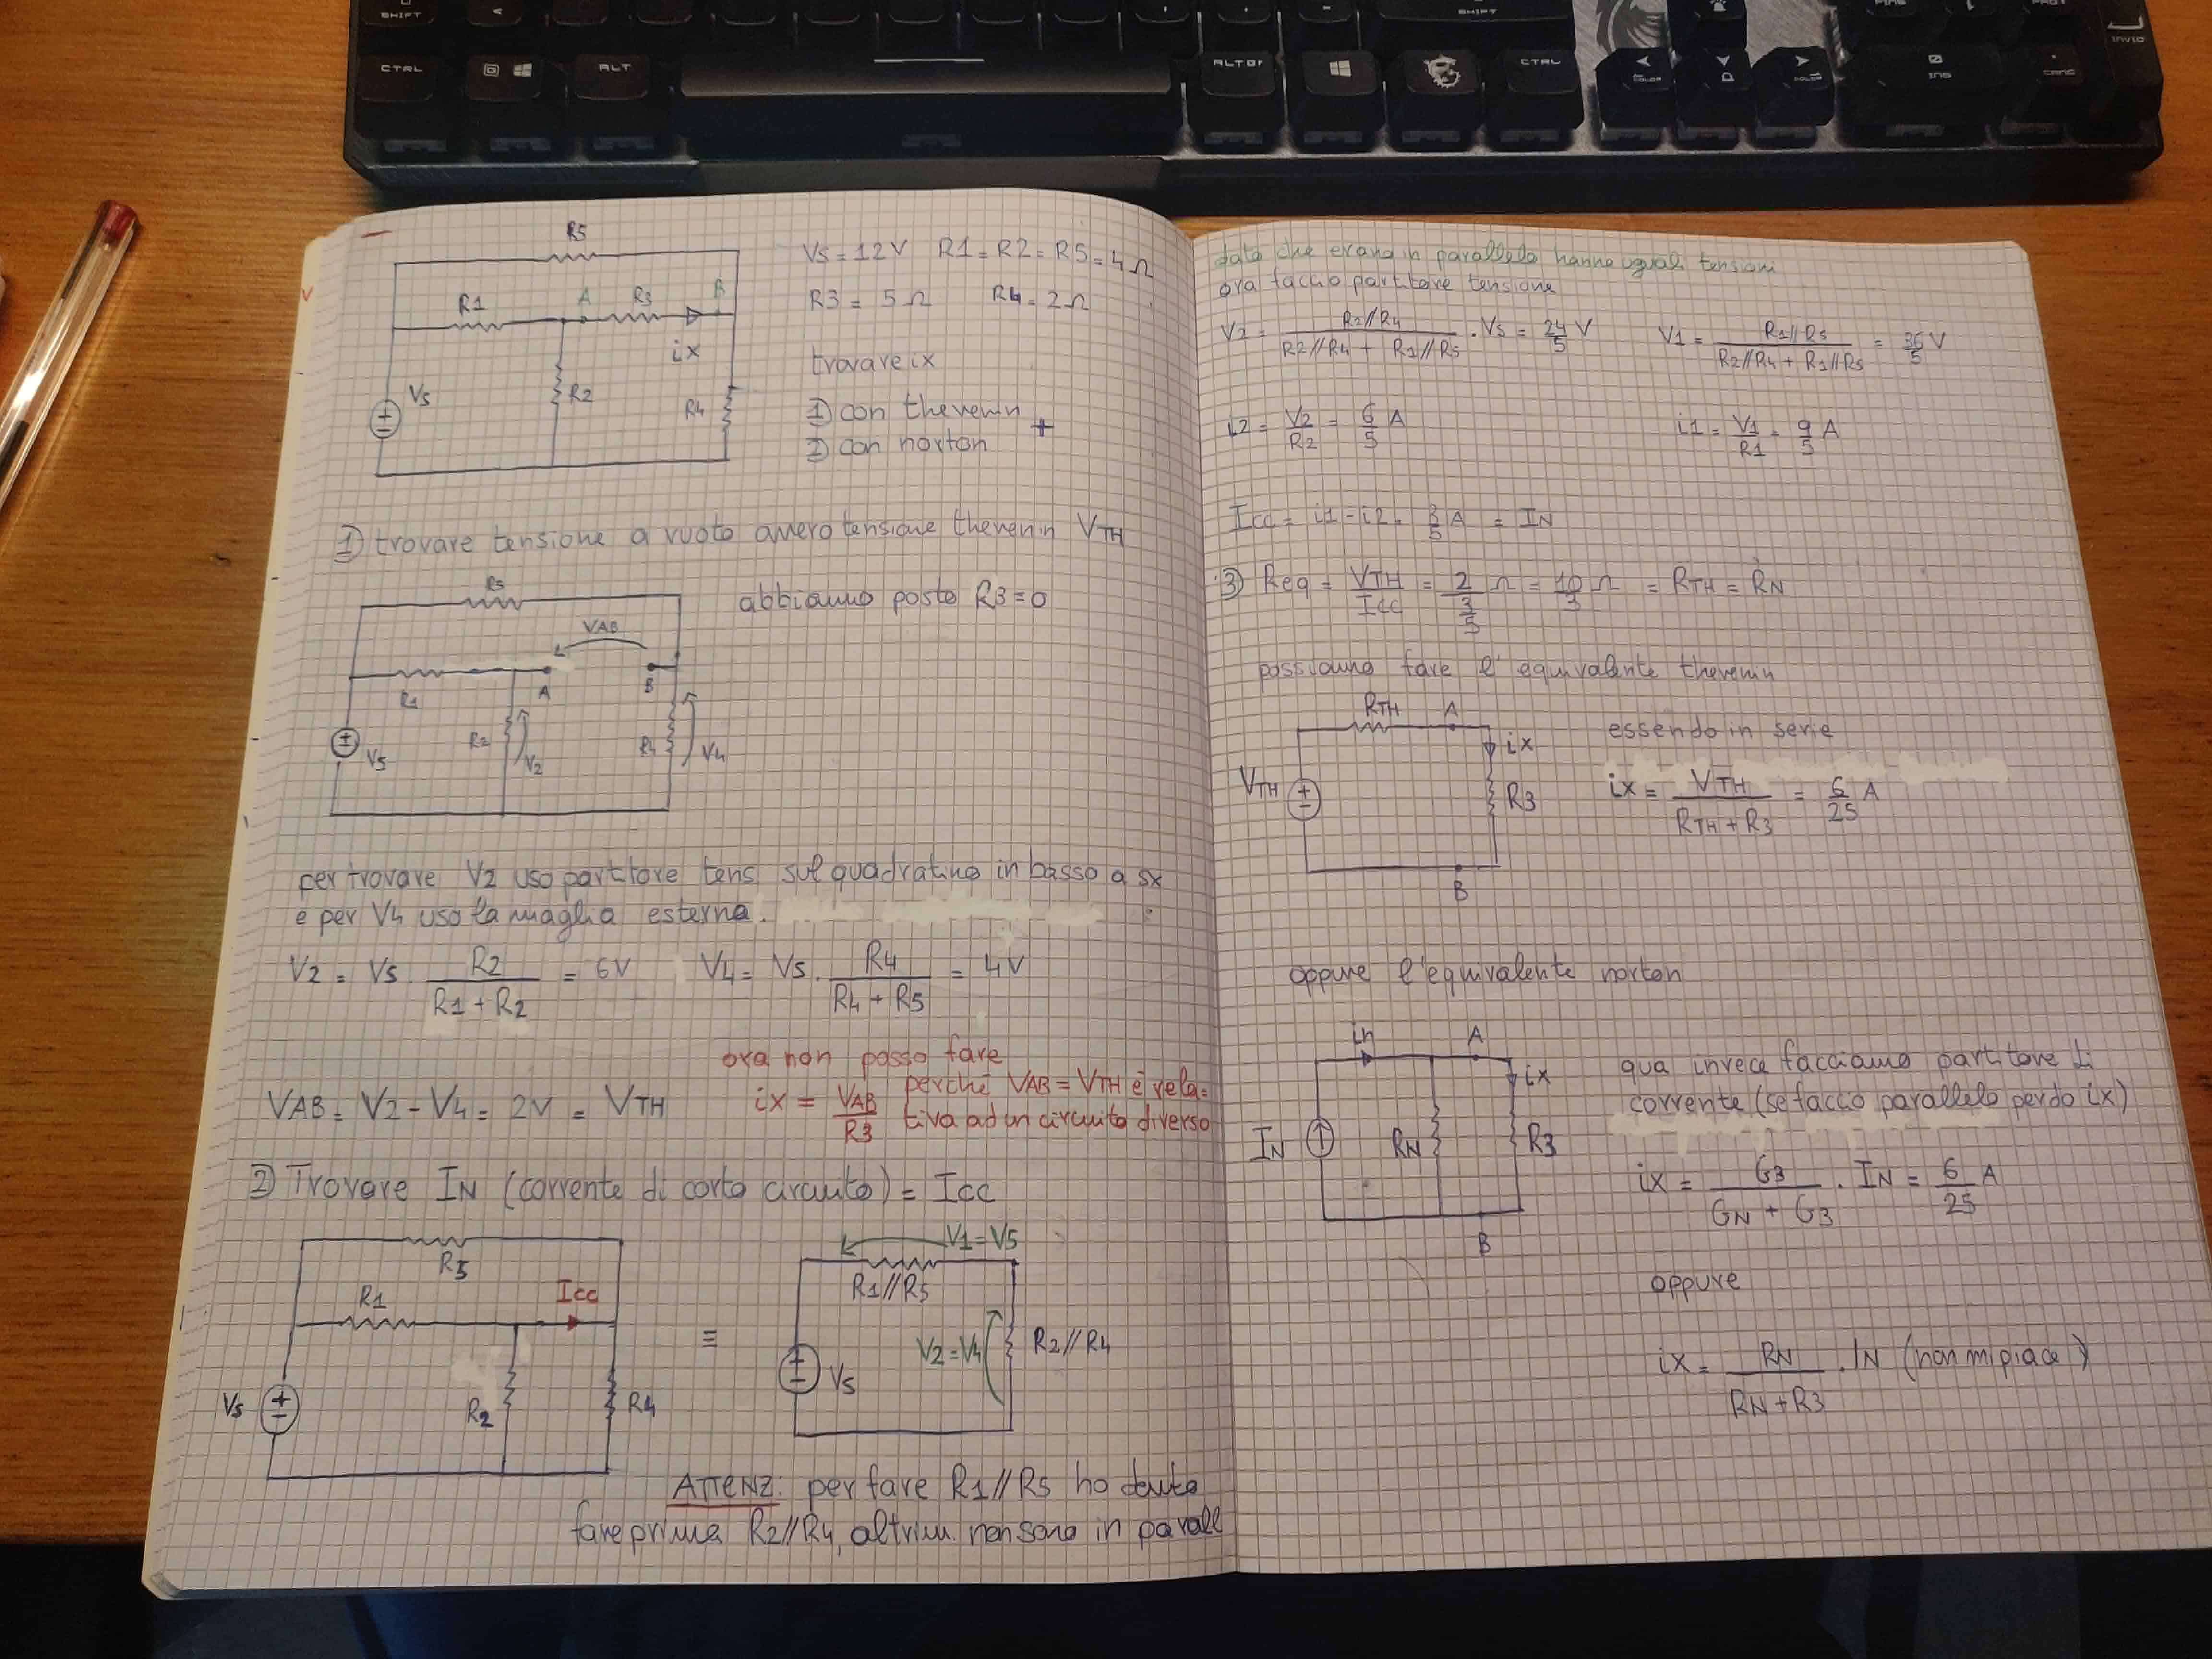 SHIFT
SHIFT
CTRL
ALT
ALTGr
CTRL
INS
INVIO
R5
R1
A
R3
B
ix
Vs
R2
R4
Vs = 12V R1 = R2 = R5 = 4Ω
R3 = 5Ω R4 = 2Ω
trovare ix
1) con thevenin +
2) con norton
1) trovare tensione a vuoto ovvero tensione thevenin VTH
R5
abbiamo posto R3=0
VAB
R1
A
B
R2
V2
R4
V4
Vs
per trovare V2 uso partitore tens. sul quadratino in basso a sx
e per V4 uso la maglia esterna.
V2 = Vs · R2 / (R1 + R2) = 6V V4 = Vs · R4 / (R4 + R5) = 4V
ora non posso fare
VAB = V2 - V4 = 2V = VTH
ix = VAB / R3 perché VAB = VTH è rela=
tiva ad un circuito diverso
2) Trovare IN (corrente di corto circuito) = Icc
R5
R1
Icc
Vs
R2
R4
≡
V1=V5
R1//R5
V2=V4
R2//R4
Vs
ATTENZ: per fare R1//R5 ho dovuto
fare prima R2//R4, altrim. non sono in parall
dato che erano in parallelo hanno uguali tensioni
ora faccio partitore tensione
V2 = R2//R4 / (R2//R4 + R1//R5) · Vs = 24/5 V V1 = R1//R5 / (R2//R4 + R1//R5) = 36/5 V
i2 = V2/R2 = 6/5 A i1 = V1/R1 = 9/5 A
Icc = i1 - i2 = 3/5 A = IN
3) Req = VTH/Icc = 2/(3/5) Ω = 10/3 Ω = RTH = RN
possiamo fare l'equivalente thevenin
RTH
A
ix
VTH
R3
B
essendo in serie
ix = VTH / (RTH + R3) = 6/25 A
oppure l'equivalente norton
in
A
ix
IN
RN
R3
B
qua invece facciamo partitore di
corrente (se faccio parallelo perdo ix)
ix = G3 / (GN + G3) · IN = 6/25 A
oppure
ix = RN / (RN+R3) · IN (non mi piace)